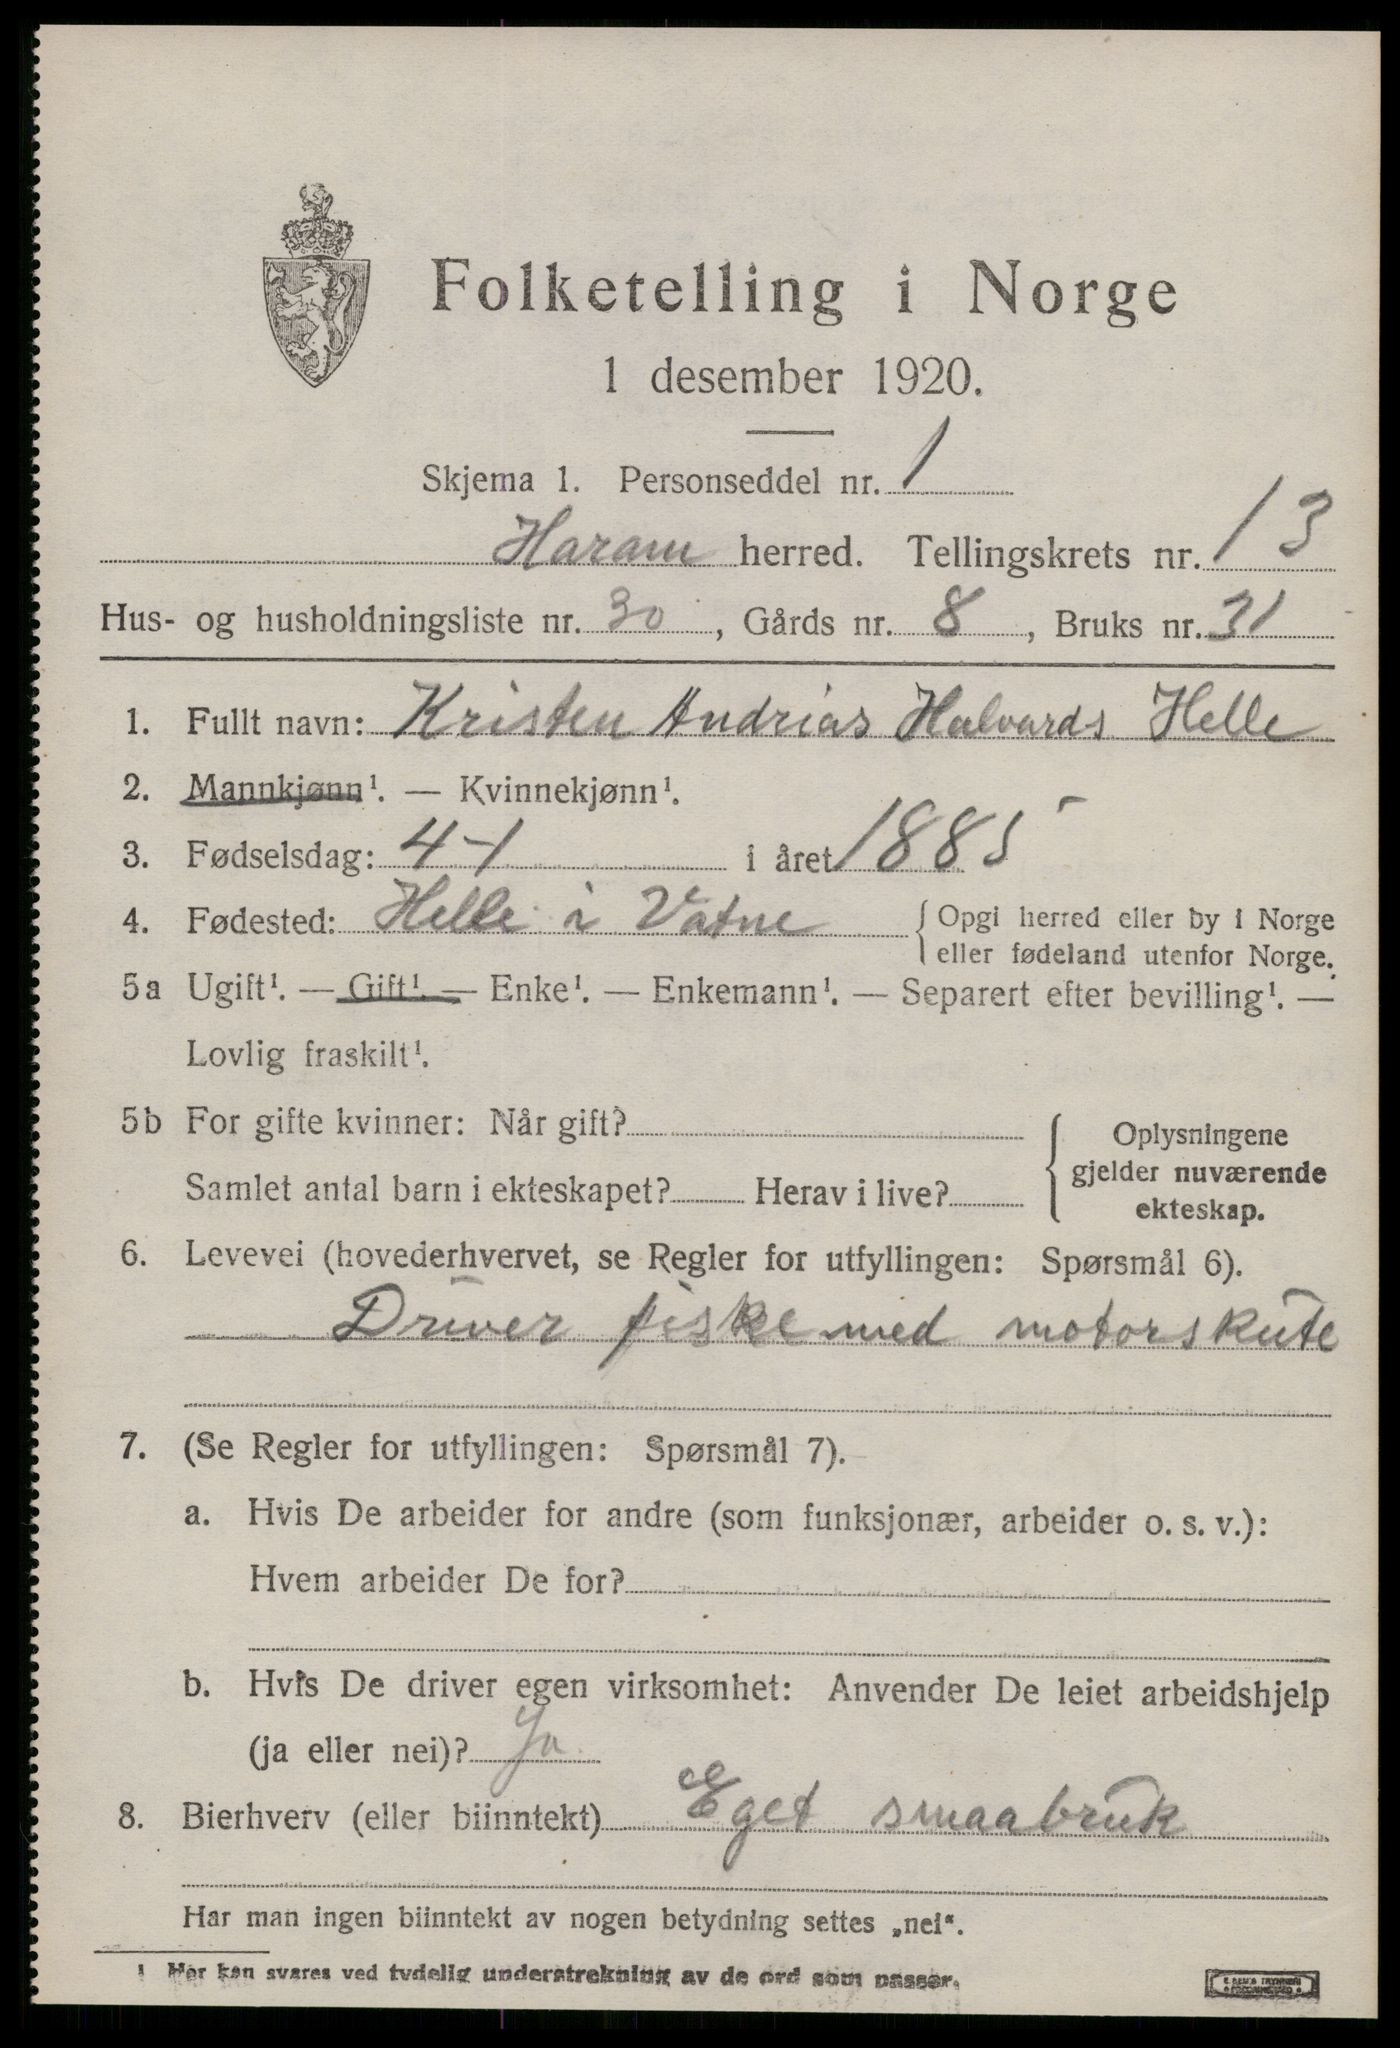 Folketelling i Norge
1 desember 1920.
Skjema 1. Personseddel nr. 1
Haram herred. Tellingskrets nr. 13
Hus- og husholdningsliste nr. 30, Gårds nr. 8, Bruks nr. 31
1. Fullt navn: Kristen Andrias Halvards Helle
2. Mannkjønn¹. — Kvinnekjønn¹.
3. Fødselsdag: 4-1 i året 1885
4. Fødested: Helle i Vatne { Opgi herred eller by i Norge
eller fødeland utenfor Norge.
5a Ugift¹. — Gift¹. — Enke¹. — Enkemann¹. — Separert efter bevilling¹. —
Lovlig fraskilt¹.
5b For gifte kvinner: Når gift?
Samlet antal barn i ekteskapet? Herav i live?
{ Oplysningene
gjelder nuværende
ekteskap.
6. Levevei (hovederhvervet, se Regler for utfyllingen: Spørsmål 6).
Driver fiske med motorskute
7. (Se Regler for utfyllingen: Spørsmål 7).
a. Hvis De arbeider for andre (som funksjonær, arbeider o. s. v.):
Hvem arbeider De for?
b. Hvis De driver egen virksomhet: Anvender De leiet arbeidshjelp
(ja eller nei)? Ja
8. Bierhverv (eller biinntekt) Eget smaabruk
Har man ingen biinntekt av nogen betydning settes „nei“.
1 Her kan svares ved tydelig understrekning av de ord som passer.